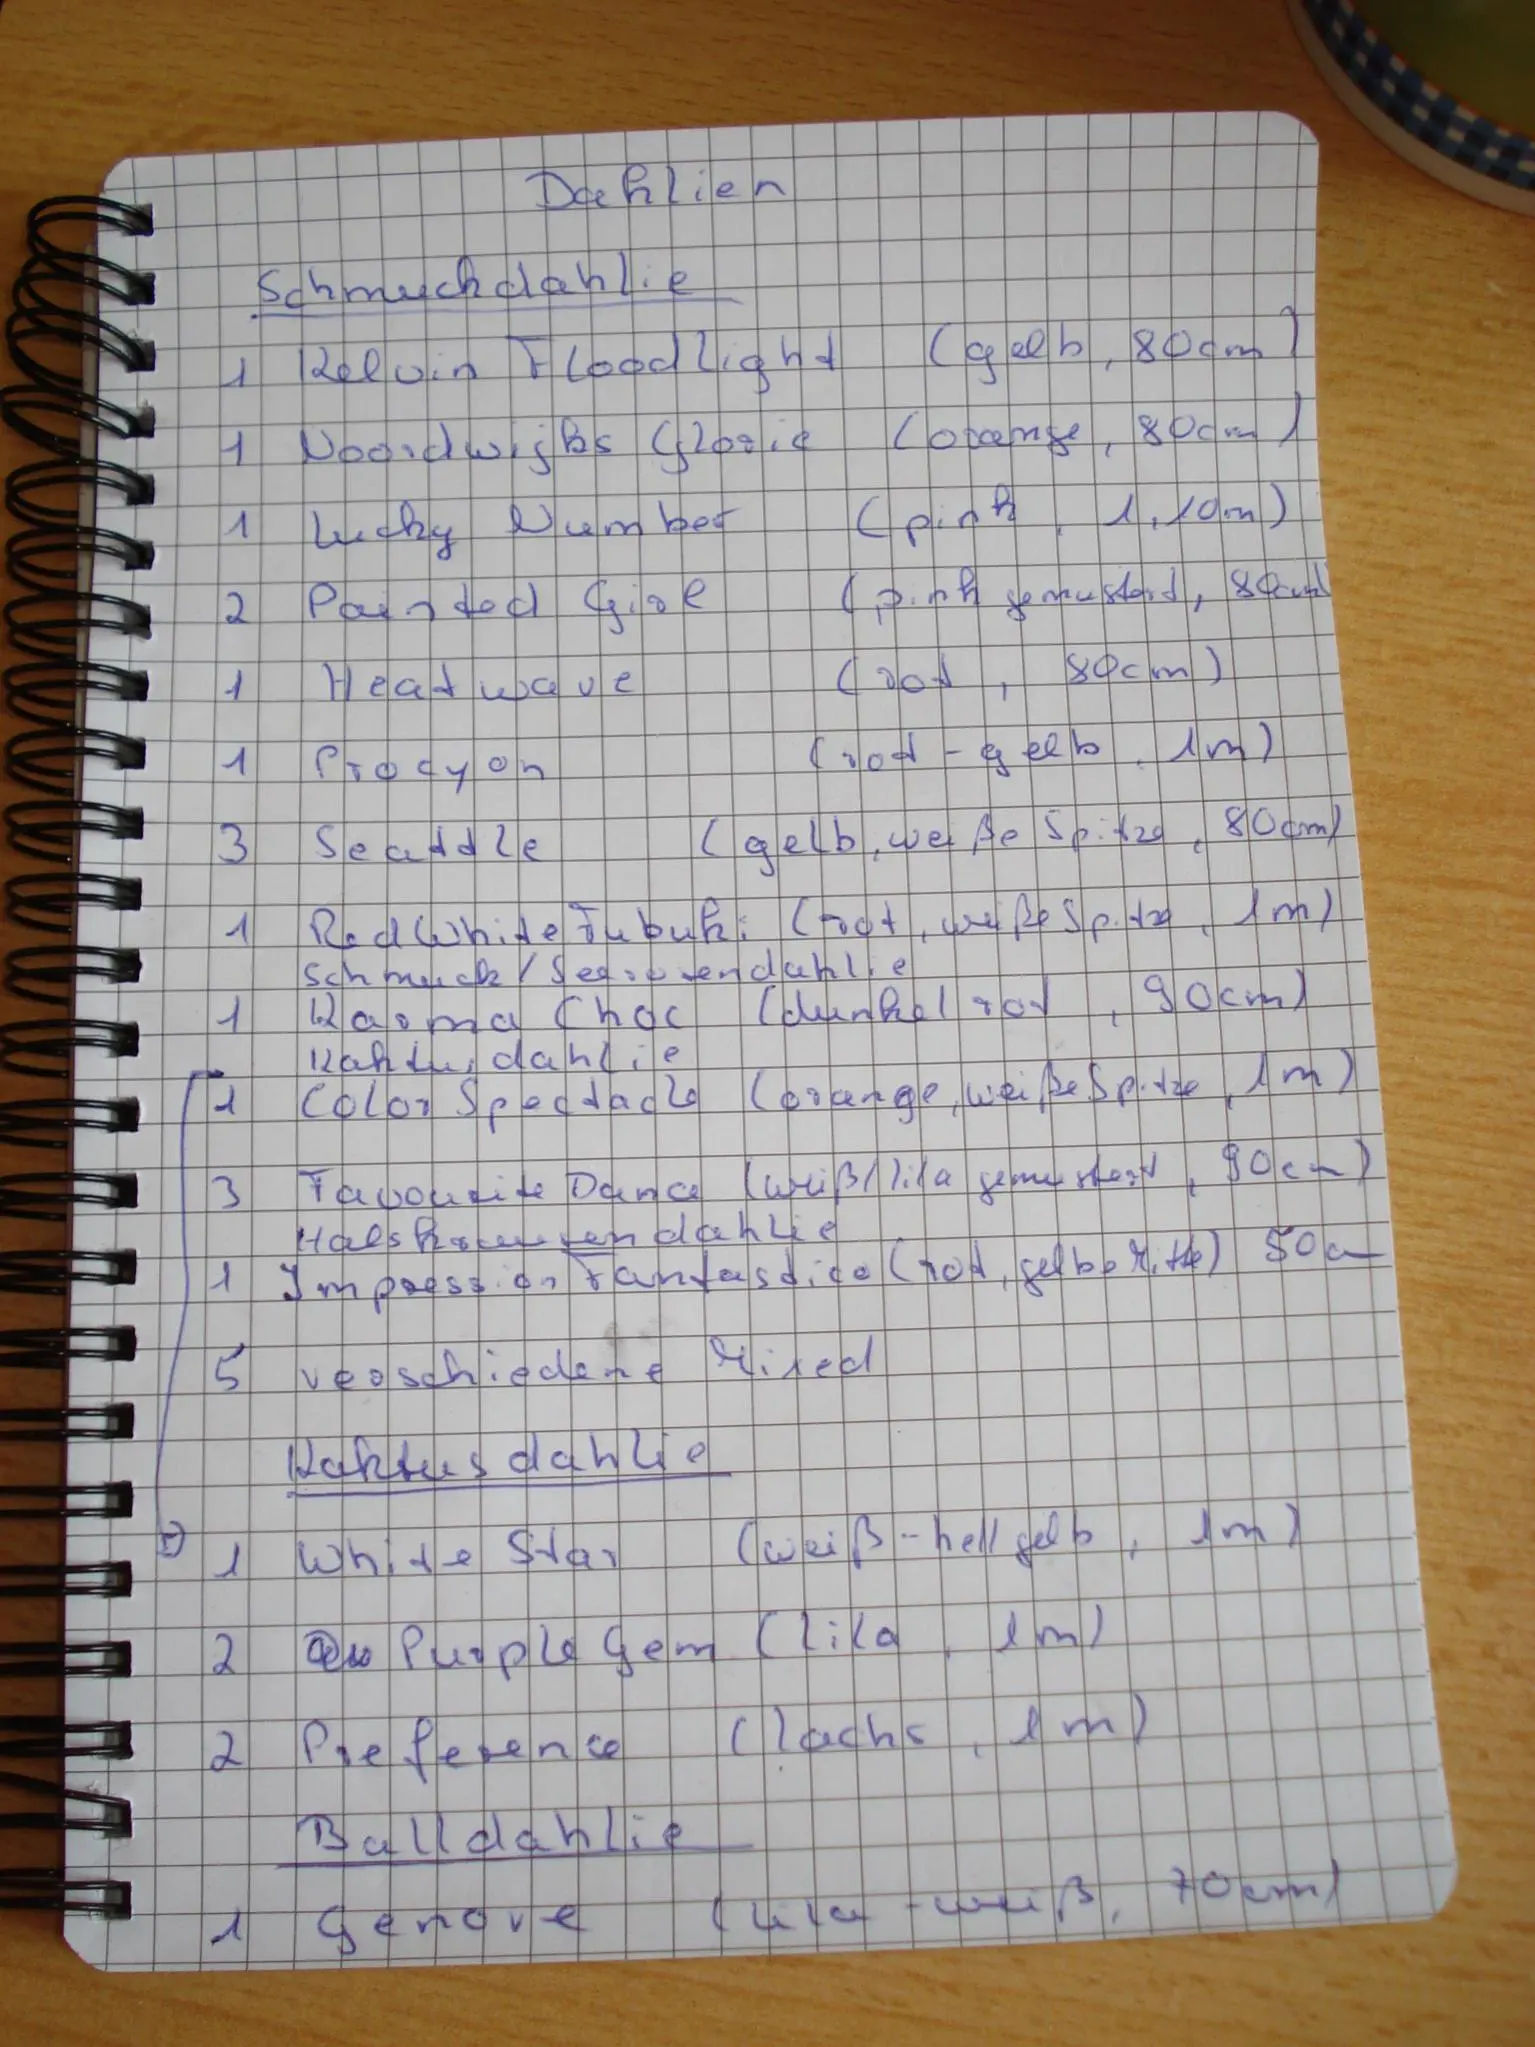 Dahlien
Schmuckdahlie
1 Kelvin Floodlight (gelb, 80cm)
1 Noordwijks Glorie (orange, 80cm)
1 Lucky Number (pink, 1,10m)
2 Painted Girl (pink gemustert, 80cm)
1 Heatwave (rot, 80cm)
1 Procyon (rot-gelb, 1m)
3 Seattle (gelb, weiße Spitze, 80cm)
1 Red White Fubuki (rot, weiße Spitze, 1m)
Schmuck/Seerosendahlie
1 Karma Choc (dunkelrot, 90cm)
Kaktusdahlie
1 Color Spectacle (orange, weiße Spitze, 1m)
3 Favourite Dance (weiß/lila gemustert, 90cm)
Halskrausendahlie
1 Impression Fantastico (rot, gelbe Mitte) 50cm
5 verschiedene Mixed
Kaktusdahlie
1 White Star (weiß-hellgelb, 1m)
2 Purple Gem (lila, 1m)
2 Preference (lachs, 1m)
Balldahlie
1 Genove (lila-weiß, 70cm)